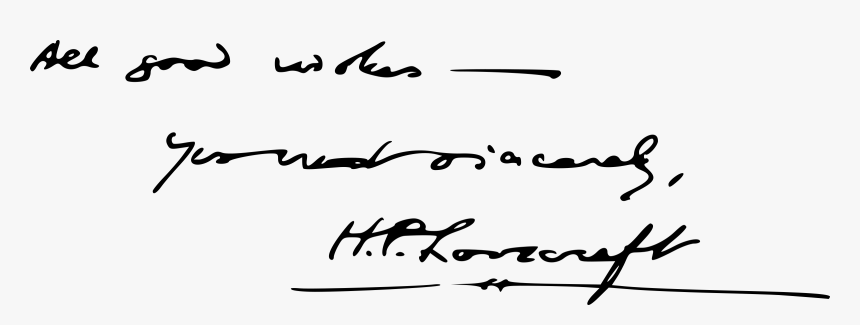 All good wishes —
Yrs most sincerely,
H.P. Lovecraft